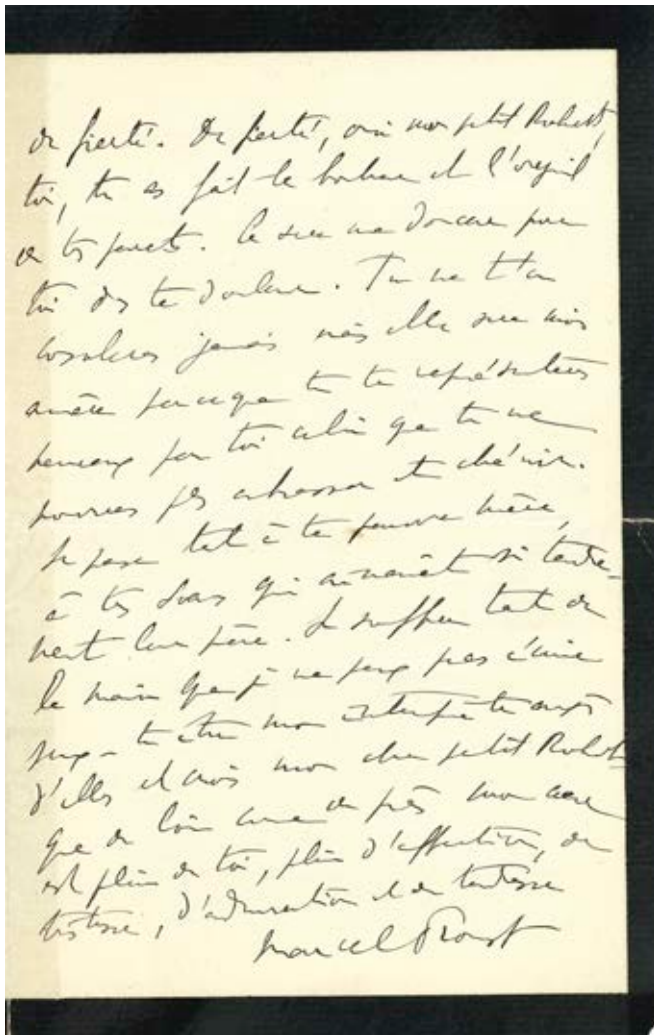 de fierté. De fierté, oui mon petit Robert,
toi, tu as fait le bonheur et l'orgueil
de tes parents. Ce sera une douceur pour
toi dans ta douleur. Tu ne t'en
consoleras jamais mais elle sera moins
amère parce que tu te représenteras
par toi celui que tu ne
pourras pas embrasser et chérir.
Je pense tant à ta pauvre mère,
à tes sœurs qui aimaient si tendre-
ment leur père. Je souffre tant de
la main que je ne peux pas écrire
peux-tu être mon interprète auprès
d'elles et crois mon cher petit Robert
que de loin comme de près mon cœur
est plein de toi, plein d'affection, de
tristesse, d'admiration et de tendresse
Marcel Proust